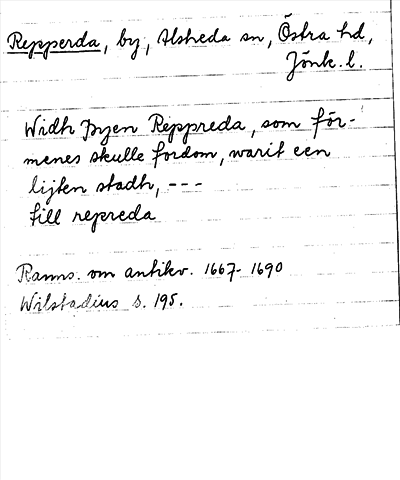 Repperda, by, Alsheda sn, Östra hd,
Jönk. l.
Widh byen Reppreda, som för-
menes skulle fordom, warit een
lijten stadh, ---
till repreda
Ranns. om antikv. 1667-1690
Wilstadius s. 195.